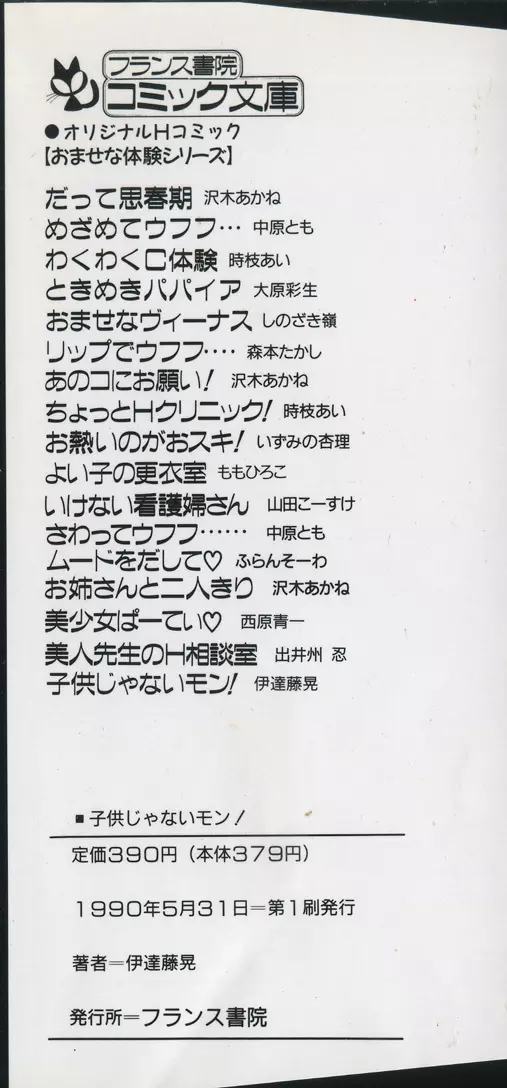 フランス書院
コミック文庫
●オリジナルHコミック
【おませな体験シリーズ】
だって思春期 沢木あかね
めざめてウフフ… 中原とも
わくわくC体験 時枝あい
ときめきパパイア 大原彩生
おませなヴィーナス しのざき嶺
リップでウフフ‥‥ 森本たかし
あのコにお願い! 沢木あかね
ちょっとHクリニック! 時枝あい
お熱いのがおスキ! いずみの杏理
よい子の更衣室 ももひろこ
いけない看護婦さん 山田こーすけ
さわってウフフ…… 中原とも
ムードをだして♡ ふらんそーわ
お姉さんと二人きり 沢木あかね
美少女ぱーてい♡ 西原青一
美人先生のH相談室 出井州 忍
子供じゃないモン! 伊達藤晃
■子供じゃないモン!
定価390円(本体379円)
1990年5月31日=第1刷発行
著者=伊達藤晃
発行所=フランス書院